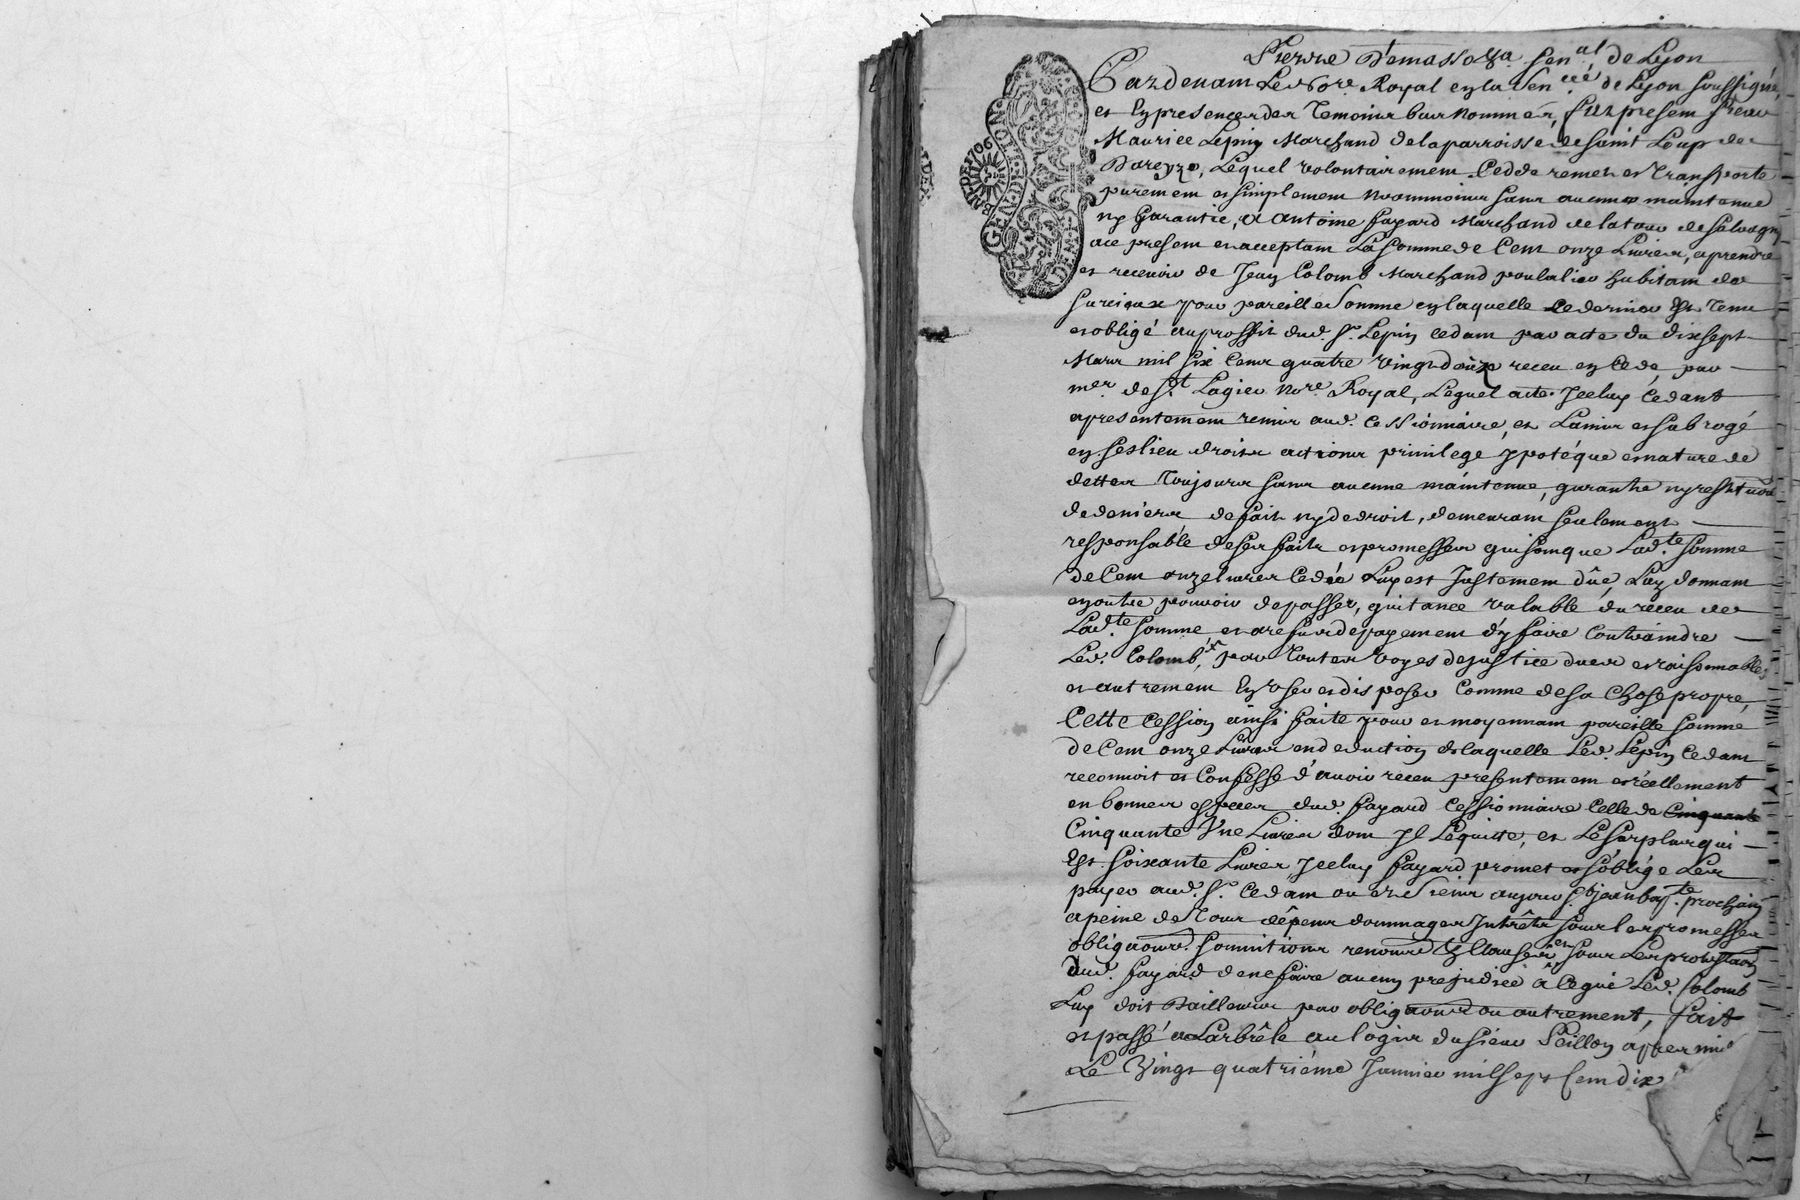 Pierre Demasso
sen.al de Lyon
Pardevant Le No.re Royal en la Sen.ceé de Lyon soussigné,
et En presence des Temoins bas nommés, fut present sieur
Maurice Lepin Marchand de la parroisse de saint Loup de
Dareyze, Lequel volontairement Cedde remet et Transporte
purement et simplement neanmoins sans aucune maintenue
ny Garantie, a Antoine fayard Marchand de la tour de salvagny
ace present et acceptant La somme de Cent onze Livres, aprendre
et recevoir de Jean Colomb Marchand habitant de
Surieux pour pareille somme en laquelle Ce dernier Est Tenu
et obligé au proffit dud. Sr. Lepin cedant par acte du dix sept
Mars mil six Cens quatre Vingt douze receu en Cede, par
m.er de St. Lagier No.re Royal, Lequel acte Jceluy Cedant
a presentement remis aud. Cessionnaire, et La mis et subrogé
en ses lieu droits actions privilege ypotéque et nature de
dettes Toujours sans aucune maintenue, garantie ny restitution
de deniers de fait ny de droit, demeurant seulement
responsable de ses faits et promesses qui sont que Lad.te somme
de Cent onze livres Cedée Luy est Justement dûe, Luy donnant
en outre pouvoir de passer, quitance valable du receu de
Lad.te somme et a refus de payement d'y faire Contraindre
Led. Colomb, par Toutes voyes de justice dues et raisonnables
et autrement En User et disposer Comme de sa Chose propre,
Cette Cession ainsi faite pour et moyennant pareille somme
de Cent onze Livres en deduction de laquelle Led. Lepin Cedant
reconnoit et Confesse d'avoir receu presentement et réellement
en bonnes especes dud. fayard Cessionnaire Celle de Cinquante
Cinquante Une Livres dont Jl Le quitte, et Le surplus qui
Est soixante Livres Jceluy fayard promet et s'oblige Les
payer aud. Sr. Cedant ou es siens au jour St. Jean bap.te prochain
a peine de Tous dépens dommages Intérêts sous les promesses
obliga͠ons. soumitions renon͠ns & Clauses, et sous Les protesta͠ons
dud. fayard de ne faire aucun prejudice a Ce que Led. Colomb
Luy doit Dailleurs par obliga͠ons ou autrement, fait
et passé a Larbrêle au logis du sieur Peillon apres midi
Le Vingt quatriéme Janvier mil sept Cent dix